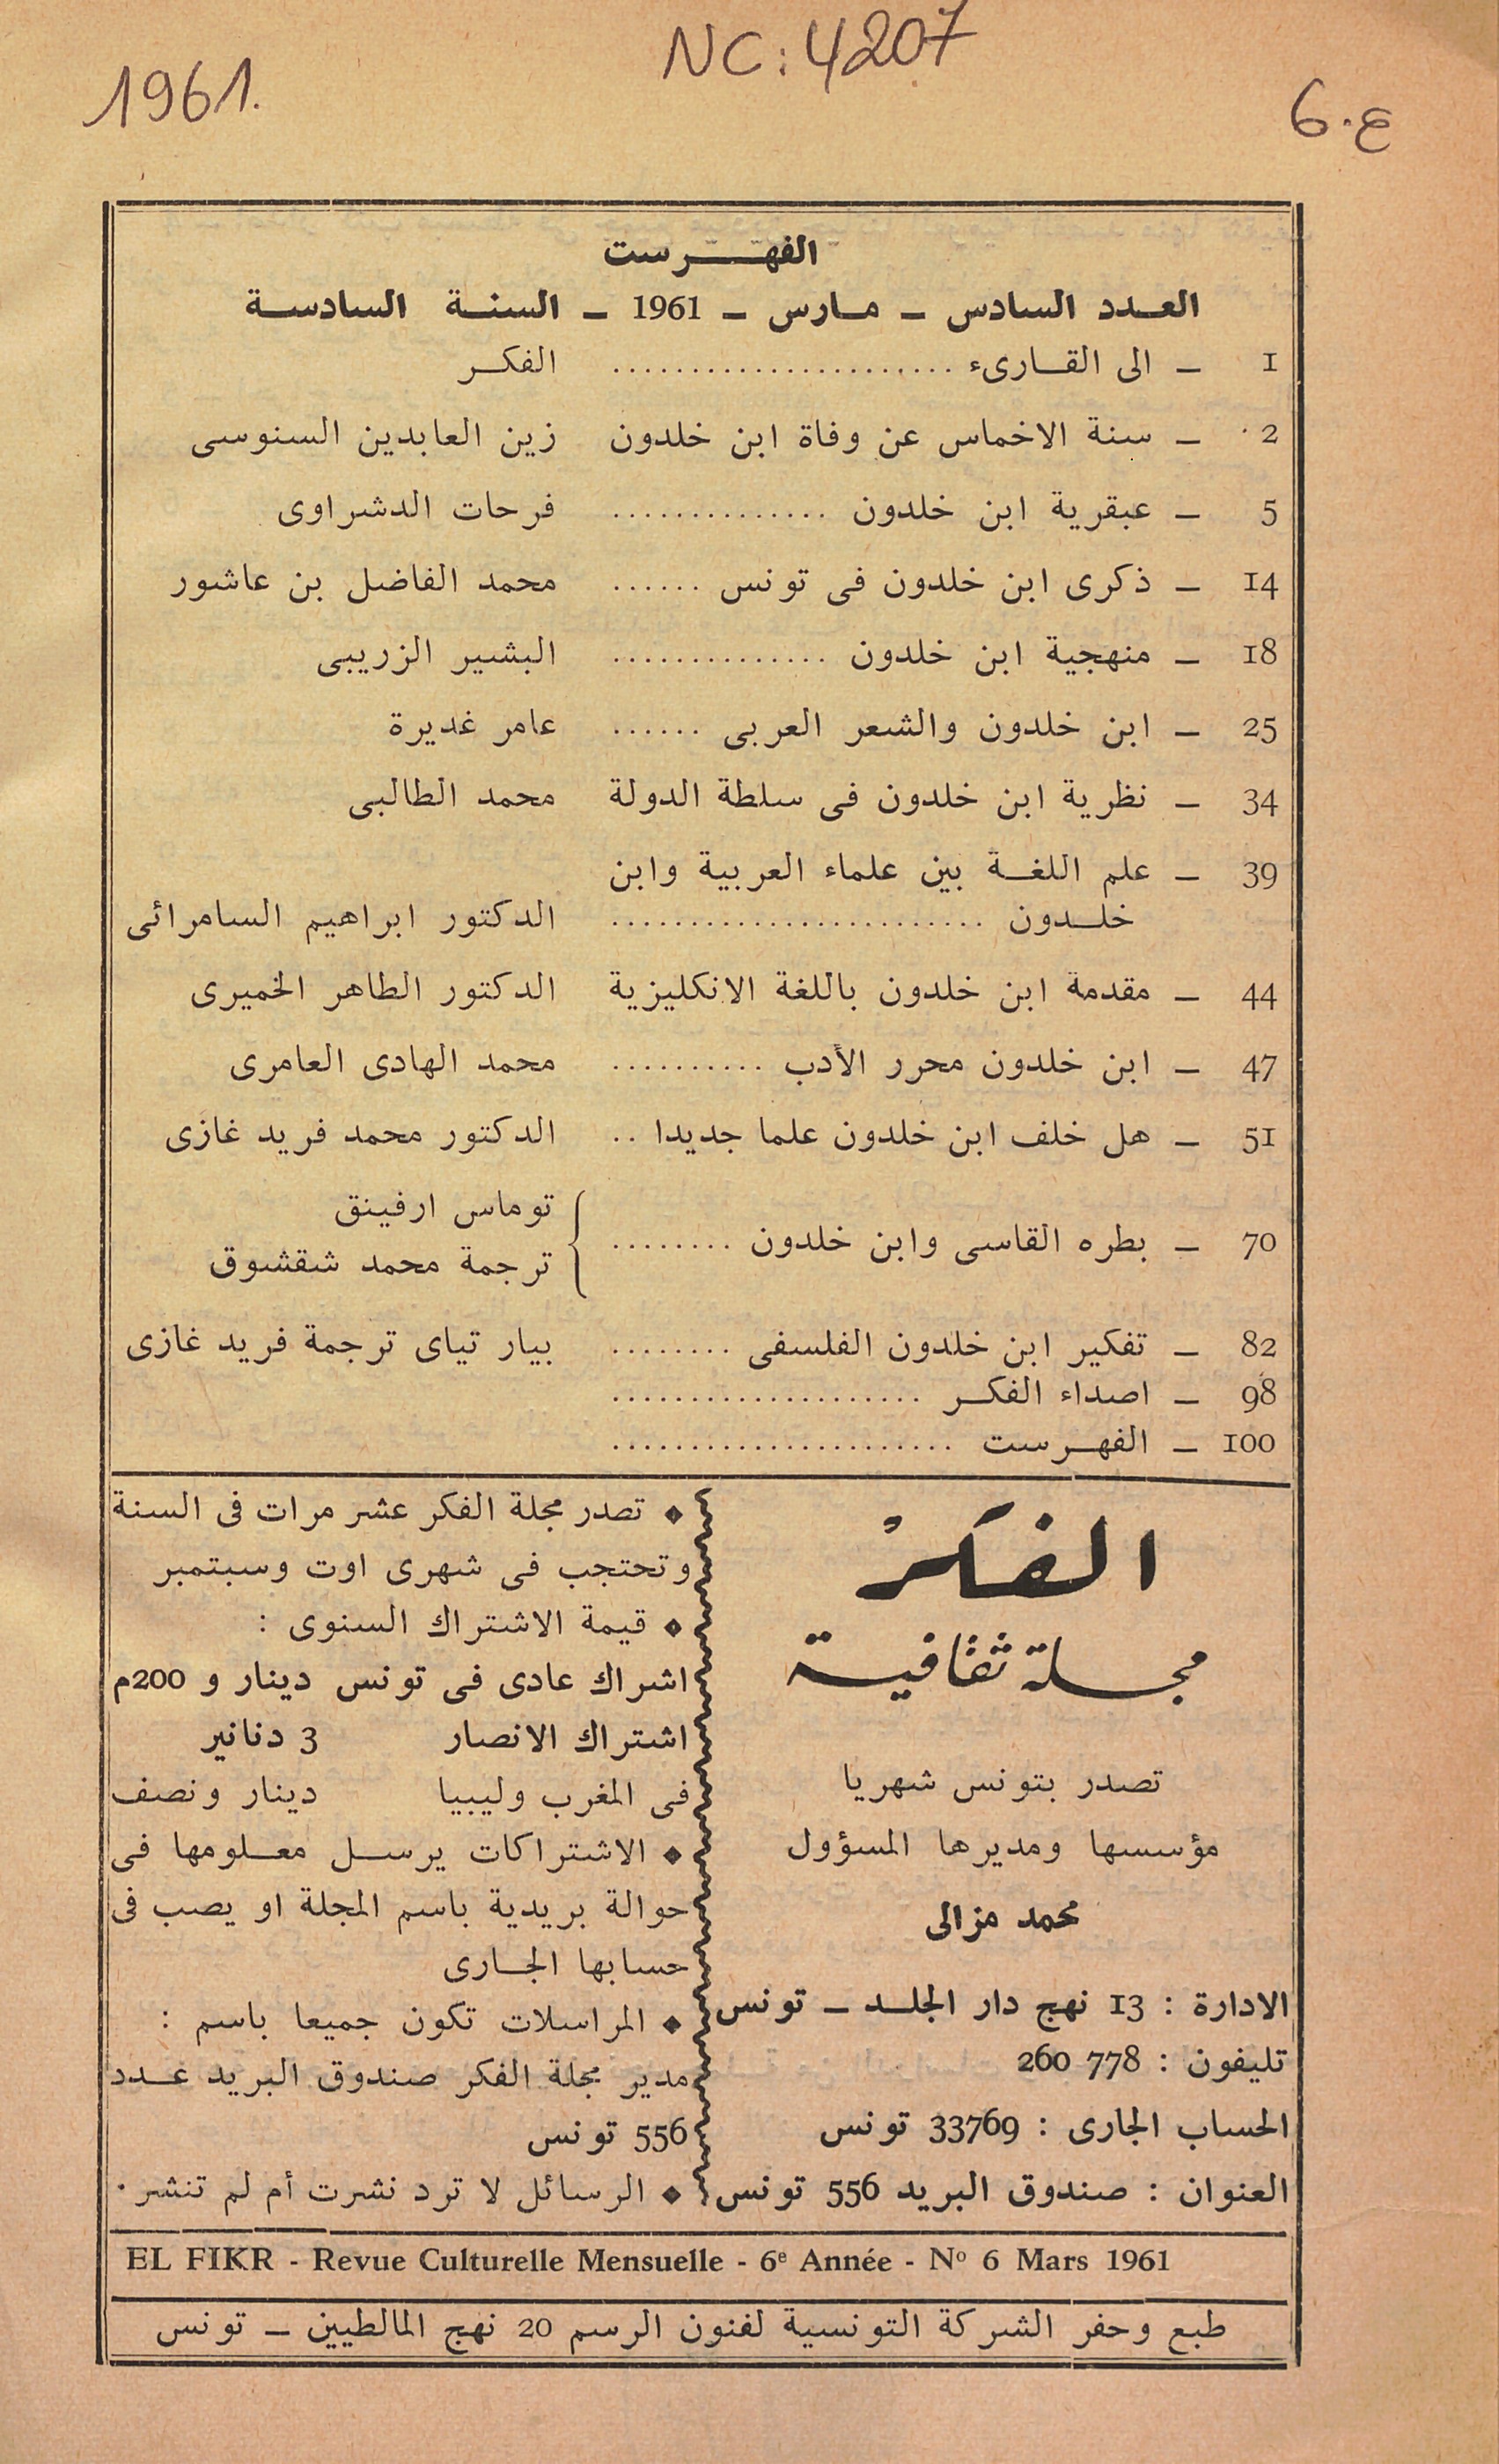 NC: 4207
1961.
ع. 6
الفهـــرست
العـدد السادس ـ مـارس ـ 1961 ـ السنـة السادسـة
1 ـ الى القـارىء ...................... الفكـر
2 ـ سنة الاخماس عن وفاة ابن خلدون زين العابدين السنوسى
5 ـ عبقرية ابن خلدون .............. فرحات الدشراوى
14 ـ ذكرى ابن خلدون فى تونس ...... محمد الفاضل بن عاشور
18 ـ منهجية ابن خلدون .............. البشير الزريبى
25 ـ ابن خلدون والشعر العربى ...... عامر غديرة
34 ـ نظرية ابن خلدون فى سلطة الدولة محمد الطالبى
39 ـ علم اللغـة بين علماء العربية وابن
خلـدون ........................ الدكتور ابراهيم السامرائى
44 ـ مقدمة ابن خلدون باللغة الانكليزية الدكتور الطاهر الخميرى
47 ـ ابن خلدون محرر الأدب .......... محمد الهادى العامرى
51 ـ هل خلف ابن خلدون علما جديدا .. الدكتور محمد فريد غازى
توماس ارفينق
70 ـ بطره القاسى وابن خلدون ........
ترجمة محمد شقشوق
82 ـ تفكير ابن خلدون الفلسفى ........ بيار تياى ترجمة فريد غازى
98 ـ اصداء الفكـر ....................
100 ـ الفهـرست ......................
الفكر
مجلة ثقافية
تصدر بتونس شهريا
مؤسسها ومديرها المسؤول
محمد مزالى
الادارة : 13 نهج دار الجلـد ـ تونس
تليفون : 778 260
الحساب الجارى : 33769 تونس
العنوان : صندوق البريد 556 تونس
◆ تصدر مجلة الفكر عشر مرات فى السنة
وتحتجب فى شهرى اوت وسبتمبر
◆ قيمة الاشتراك السنوى :
اشراك عادى فى تونس دينار و 200م
اشتراك الانصار 3 دنانير
فى المغرب وليبيا دينار ونصف
◆ الاشتراكات يرسـل معـلومها فى
حوالة بريدية باسم المجلة او يصب فى
حسابها الجـارى
◆ المراسلات تكون جميعا باسم :
مدير مجلة الفكر صندوق البريد عـدد
556 تونس
◆ الرسائل لا ترد نشرت أم لم تنشر.
EL FIKR - Revue Culturelle Mensuelle - 6e Année - No 6 Mars 1961
طبع وحفر الشركة التونسية لفنون الرسم 20 نهج المالطيين ـ تونس